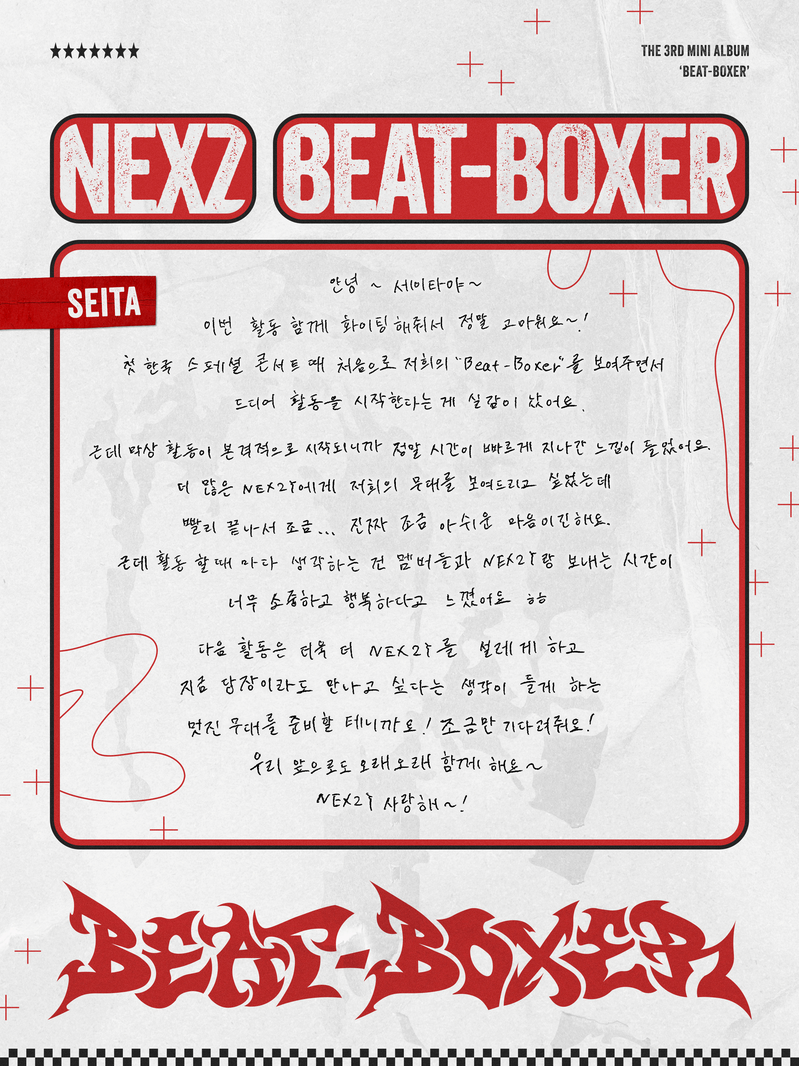 ★★★★★★★
THE 3RD MINI ALBUM
'BEAT-BOXER'
NEXZ BEAT-BOXER
SEITA
안녕 ~ 세이타야~
이번 활동 함께 화이팅해줘서 정말 고마워요~!
첫 한국 스페셜 콘서트 때 처음으로 저희의 "Beat-Boxer"를 보여주면서
드디어 활동을 시작한다는 게 실감이 났어요.
근데 막상 활동이 본격적으로 시작되니까 정말 시간이 빠르게 지나간 느낌이 들었어요.
더 많은 NEX2Y에게 저희의 무대를 보여드리고 싶었는데
빨리 끝나서 조금... 진짜 조금 아쉬운 마음이긴해요.
근데 활동 할때 마다 생각하는 건 멤버들과 NEX2Y랑 보내는 시간이
너무 소중하고 행복하다고 느꼈어요 ㅎㅎ
다음 활동은 더욱 더 NEX2Y를 설레게 하고
지금 당장이라도 만나고 싶다는 생각이 들게 하는
멋진 무대를 준비할 테니까요! 조금만 기다려줘요!
우리 앞으로도 오래오래 함께 해요~
NEX2Y 사랑해~!
BEAT-BOXER